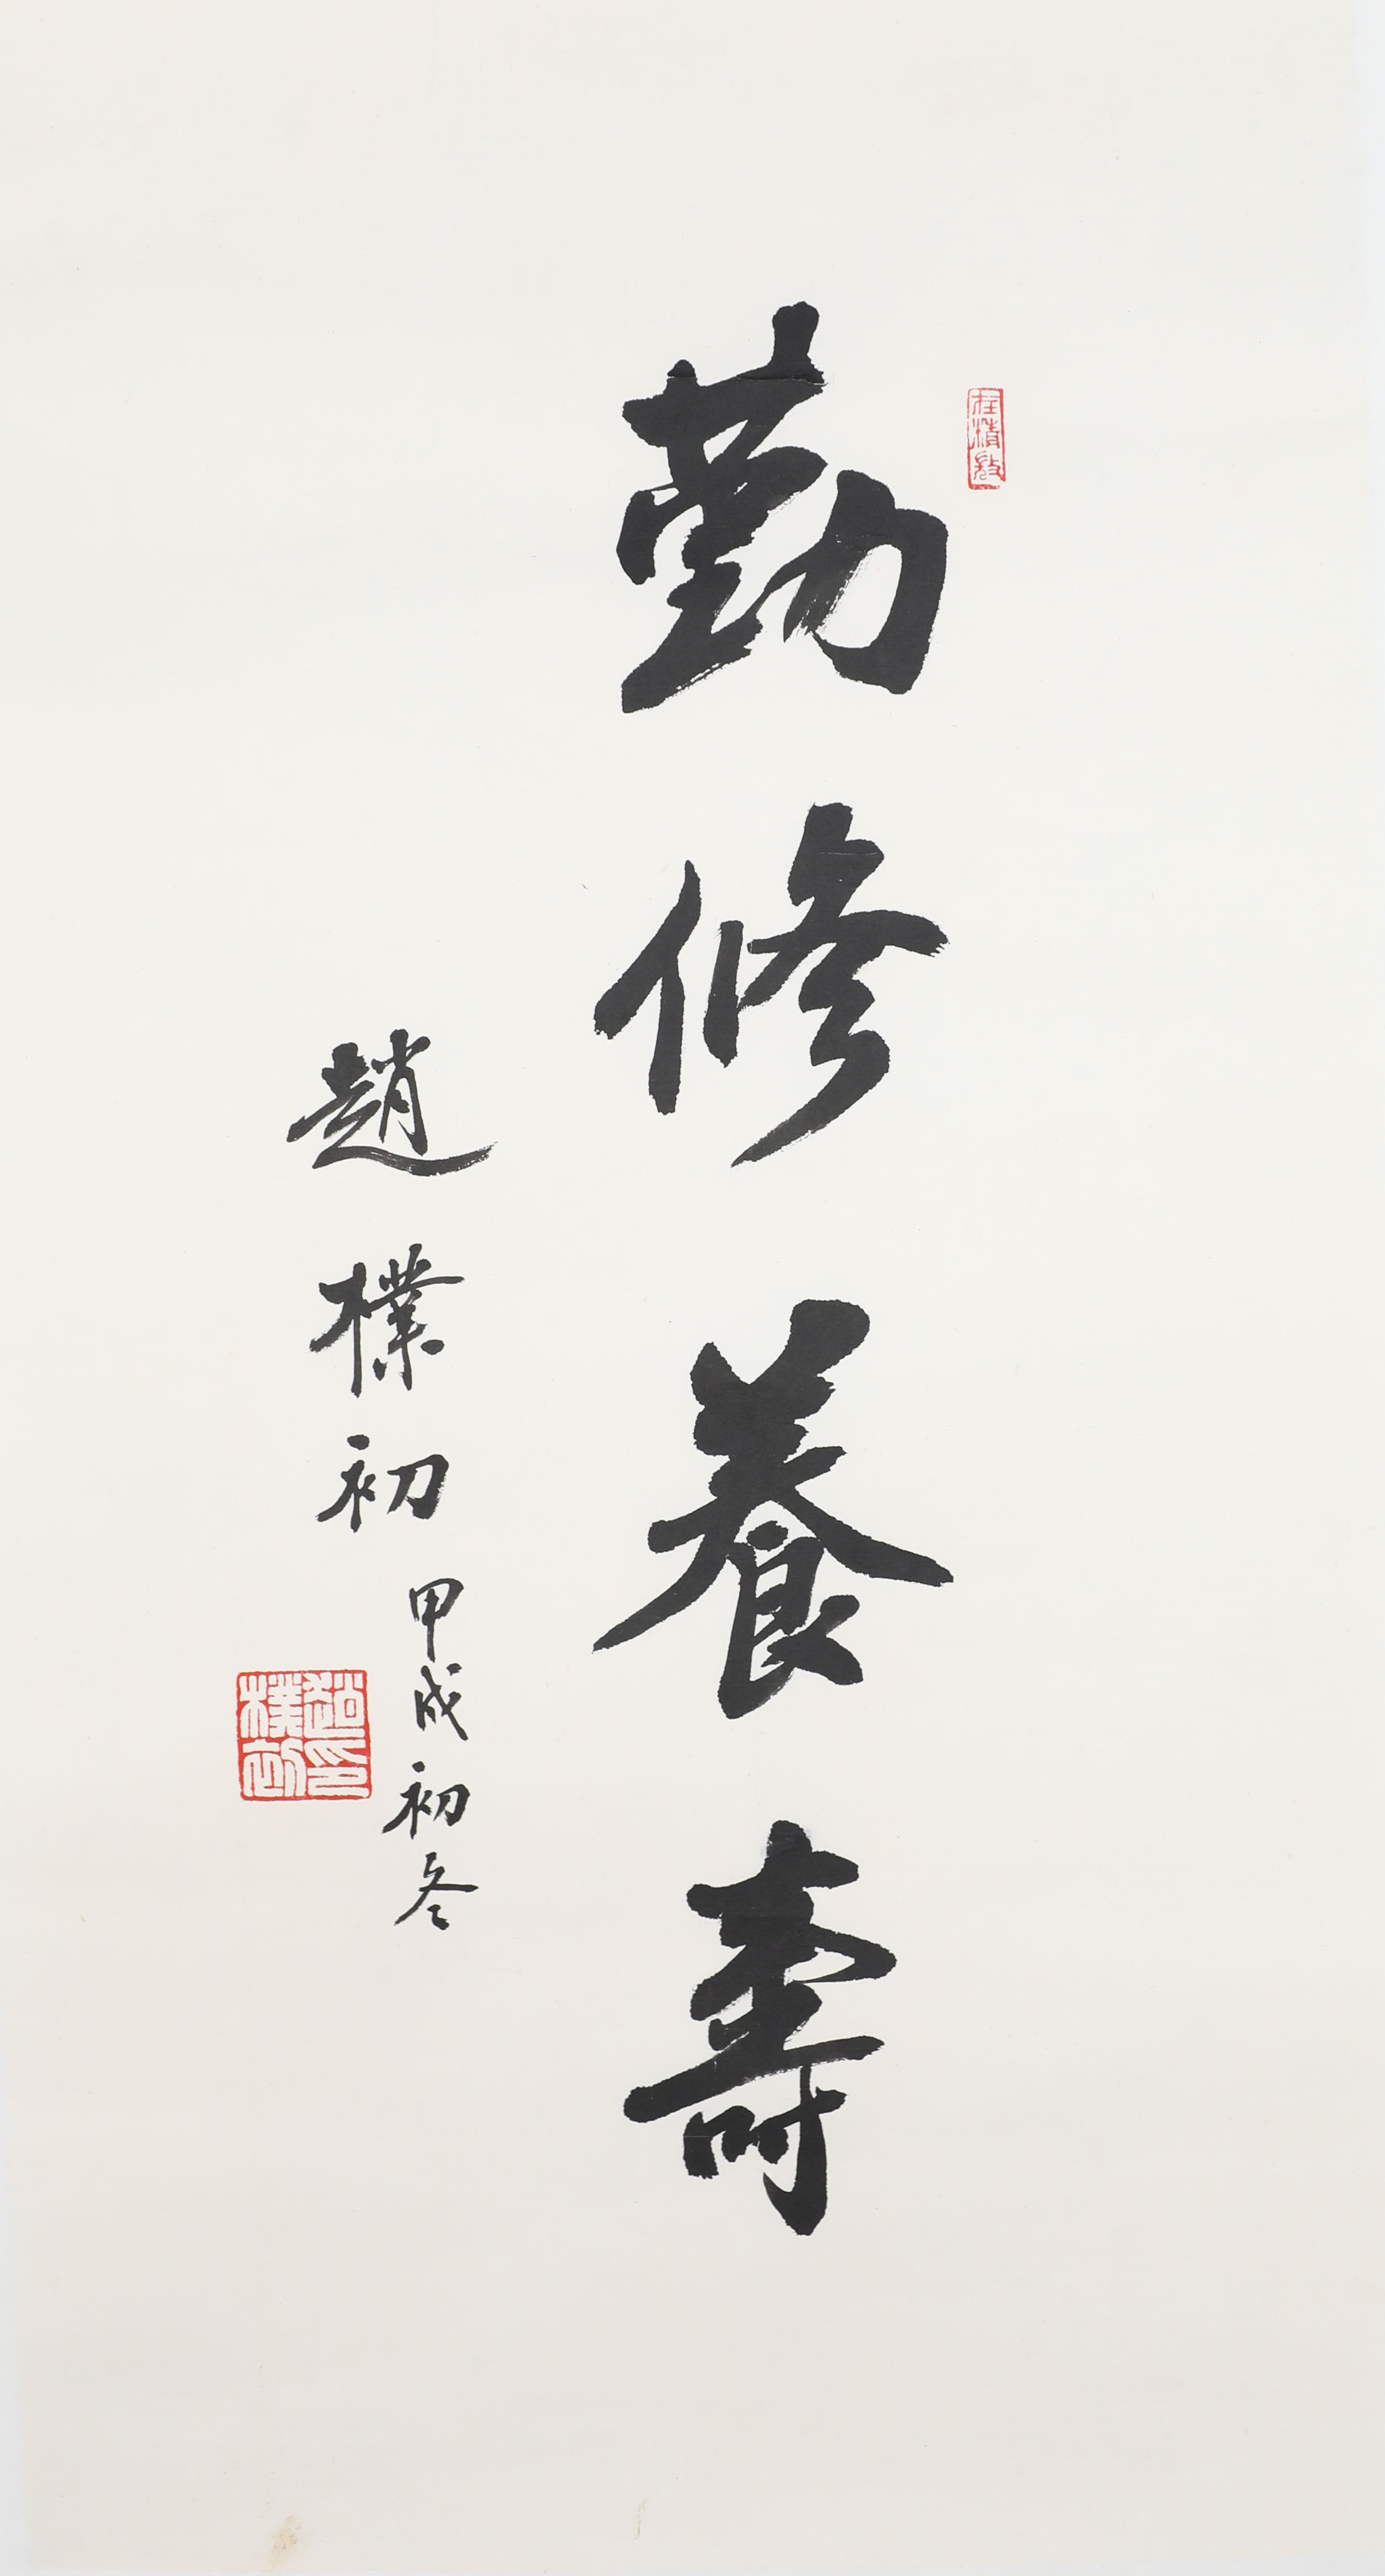 勤修養壽
趙樸初
甲戌初冬
趙樸初印